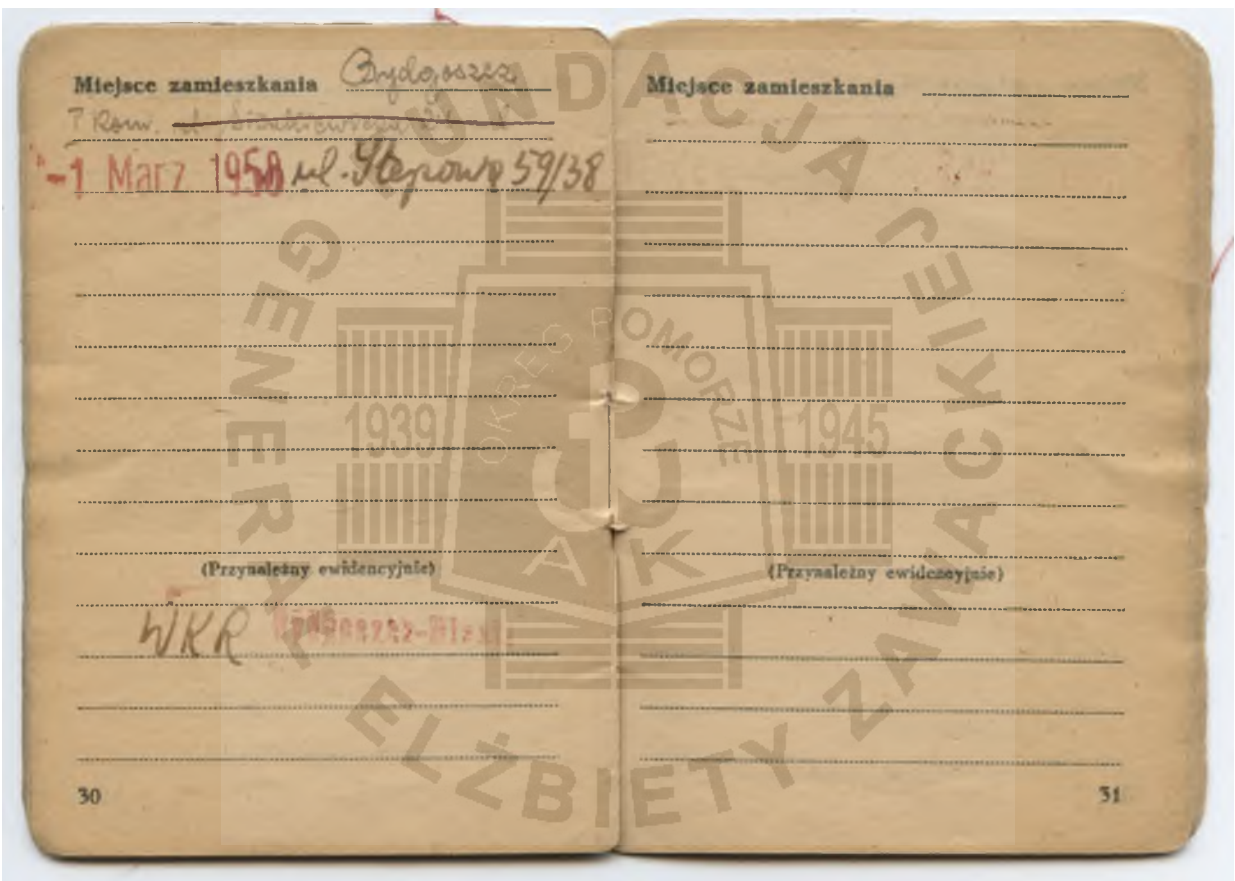 Miejsce zamieszkania Bydgoszcz
-1 Marz 1950 ul. Stepowa 59/38
(Przynależny ewidencyjnie)
WKR Bydgoszcz-Miasto
30
Miejsce zamieszkania
(Przynależny ewidencyjnie)
31
FUNDACJA GENERAŁ ELŻBIETY ZAWACKIEJ
OKRĘG POMORZE
1939
1945
AK